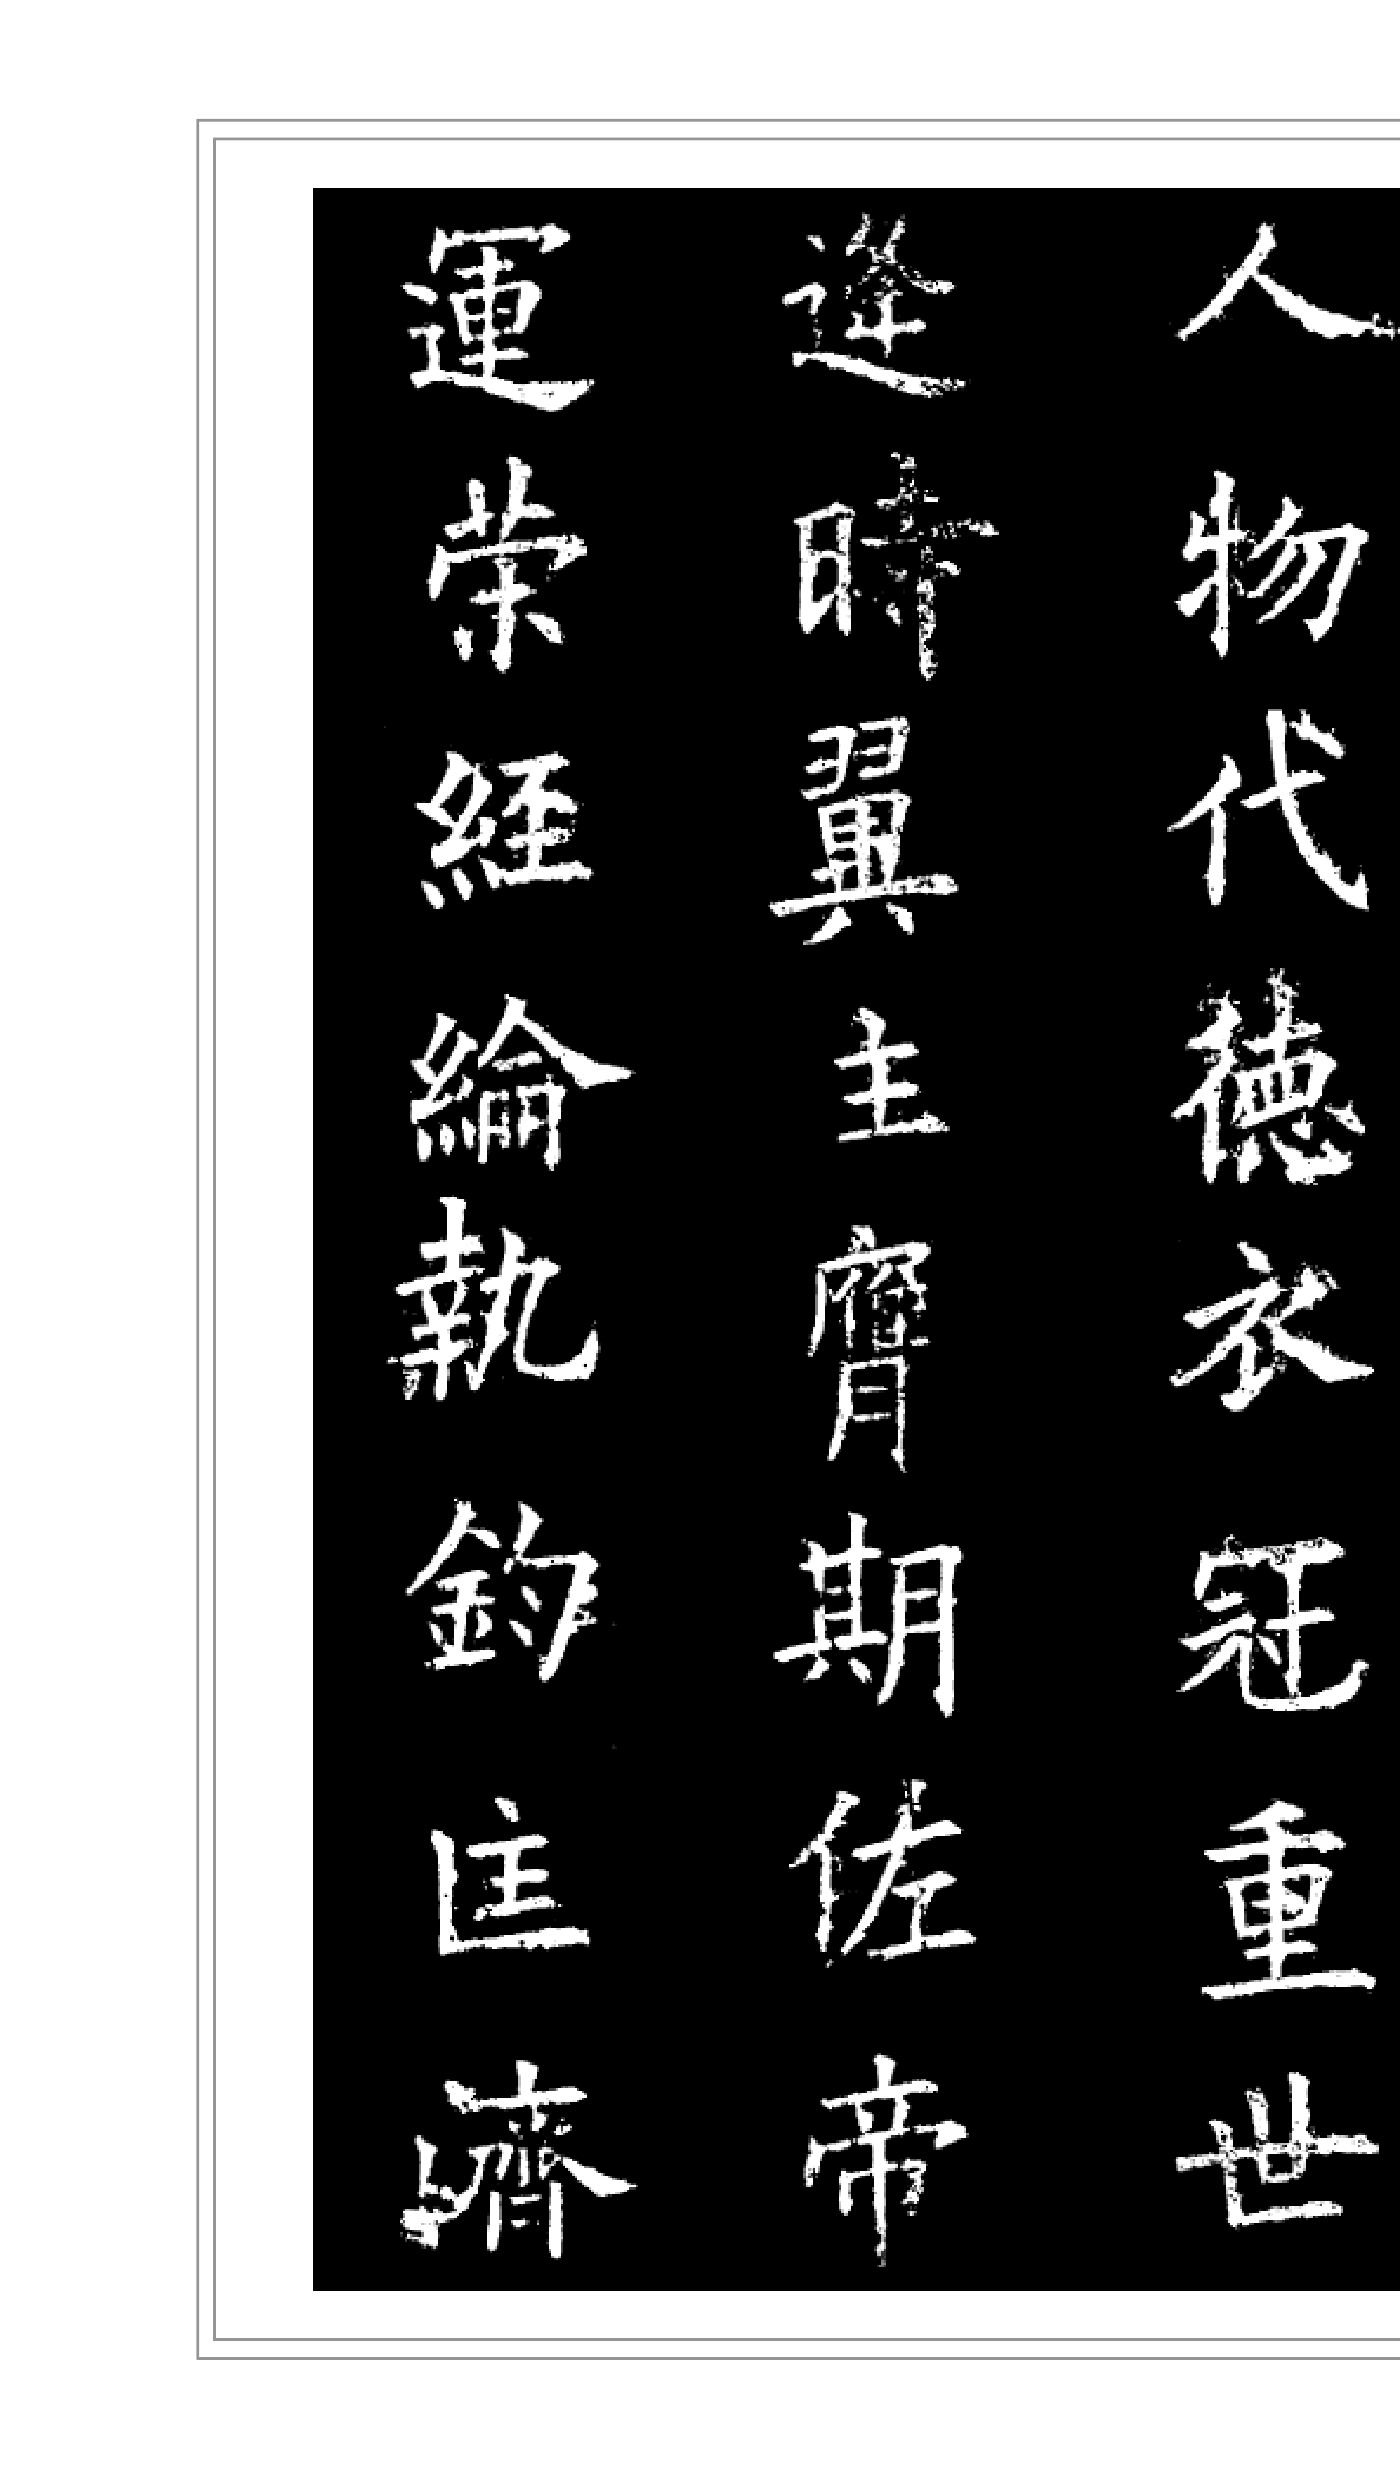 人物代德衣冠重世
逢時翼主膺期佐帝
運策經綸執鈞匡濟